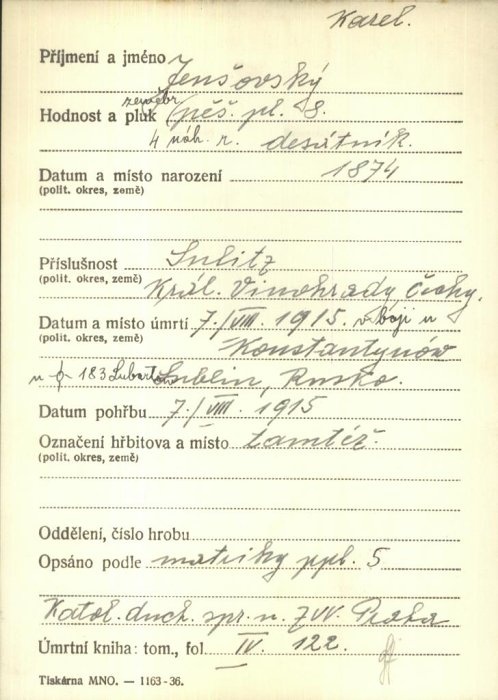 Karel.
Příjmení a jméno Jenšovský
zeměbr.
Hodnost a pluk pěš. pl. 8.
4 náh. r. desátník.
Datum a místo narození 1874
(polit. okres, země)
Příslušnost Sulitz
(polit. okres, země) Král. Vinohrady Čechy.
Datum a místo úmrtí 7./VIII. 1915. v boji u
(polit. okres, země) Konstantynów
183 Lublin, Rusko.
Datum pohřbu 7./VIII. 1915
Označení hřbitova a místo tamtéž.
(polit. okres, země)
Oddělení, číslo hrobu
Opsáno podle matriky ppl. 5
Katol. duch. spr. u ZVV. Praha
Úmrtní kniha: tom., fol. IV. 122.
Tiskárna MNO. — 1163-36.